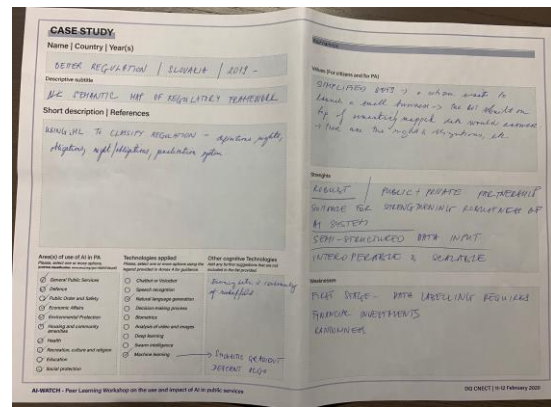 CASE STUDY
Name | Country | Year(s)
BETTER REGULATION | SLOVAKIA | 2019 -
Descriptive subtitle
SEMANTIC MAP OF REGULATORY FRAMEWORK
Short description | References
USING ML TO CLASSIFY REGULATION - definitions, rights,
obligations, right/obligations, system
Area(s) of use of AI in PA
Please, select one or more options,
General Public Services
Defence
Public Order and Safety
Economic Affairs
Environmental Protection
Housing and community
amenities
Health
Recreation, culture and religion
Education
Social protection
Technologies applied
Please, select one or more options using the
legend provided in Annex A for guidance.
Chatbot or Voicebot
Speech recognition
Natural language generation
Decision-making process
Biometrics
Analysis of video and images
Deep learning
Swarm intelligence
Machine learning
Other cognitive Technologies
Add any further suggestions that are not
included in the list provided.
GRADIENT
DESCENT ALGO
Values (For citizens and for PA)
SIMPLIFIED BOTS → a citizen wants to
launch a small business → the bot on
top of semantically mapped data would answer
are the rights & obligations, etc.
Strengths
ROBUST | PUBLIC + PRIVATE PARTNERSHIP
SUITABLE FOR STRENGTHENING ROBUSTNESS OF
AI SYSTEMS
SEMI-STRUCTURED DATA INPUT
INTEROPERABLE & SCALABLE
Weaknesses
FIRST STAGE - DATA LABELLING REQUIRES
FINANCIAL INVESTMENTS
RANDOMNESS
AI-WATCH - Peer Learning Workshop on the use and impact of AI in public services
DG CNECT | 11-12 February 2020